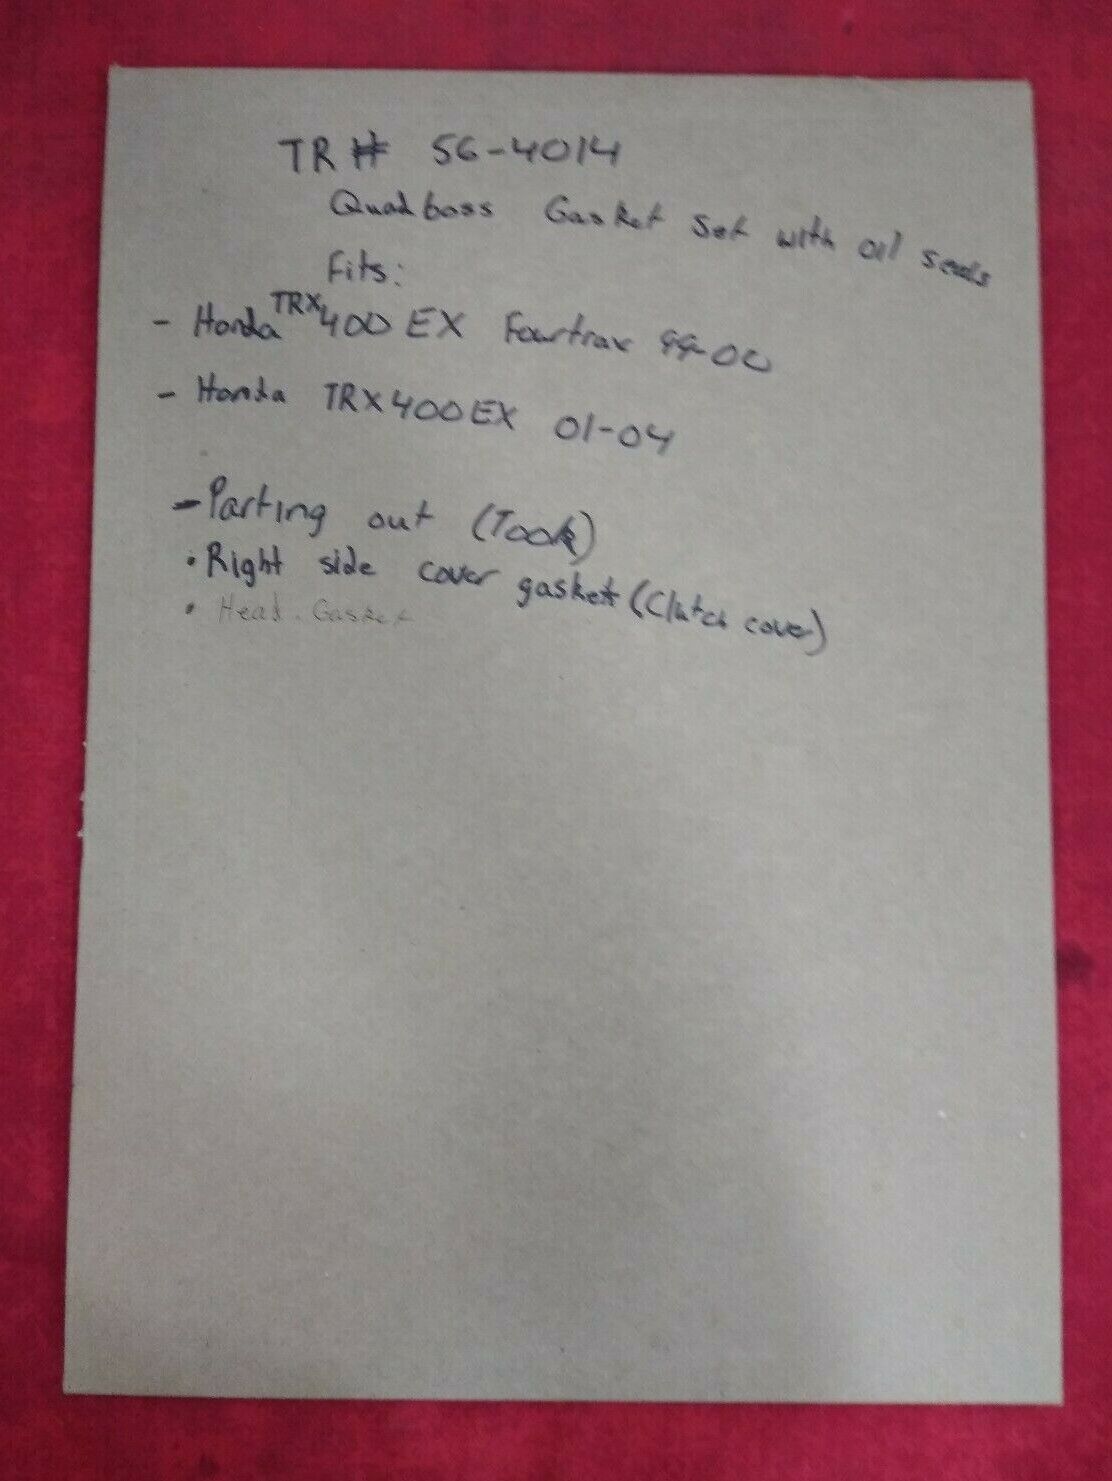 TR# 56-4014
Quadboss Gasket Set with oil seals
Fits:
- Honda TRX400EX Fourtrax 99-00
- Honda TRX400EX 01-04
- Parting out (Took)
• Right side cover gasket (Clutch cover)
• Head. Gasket